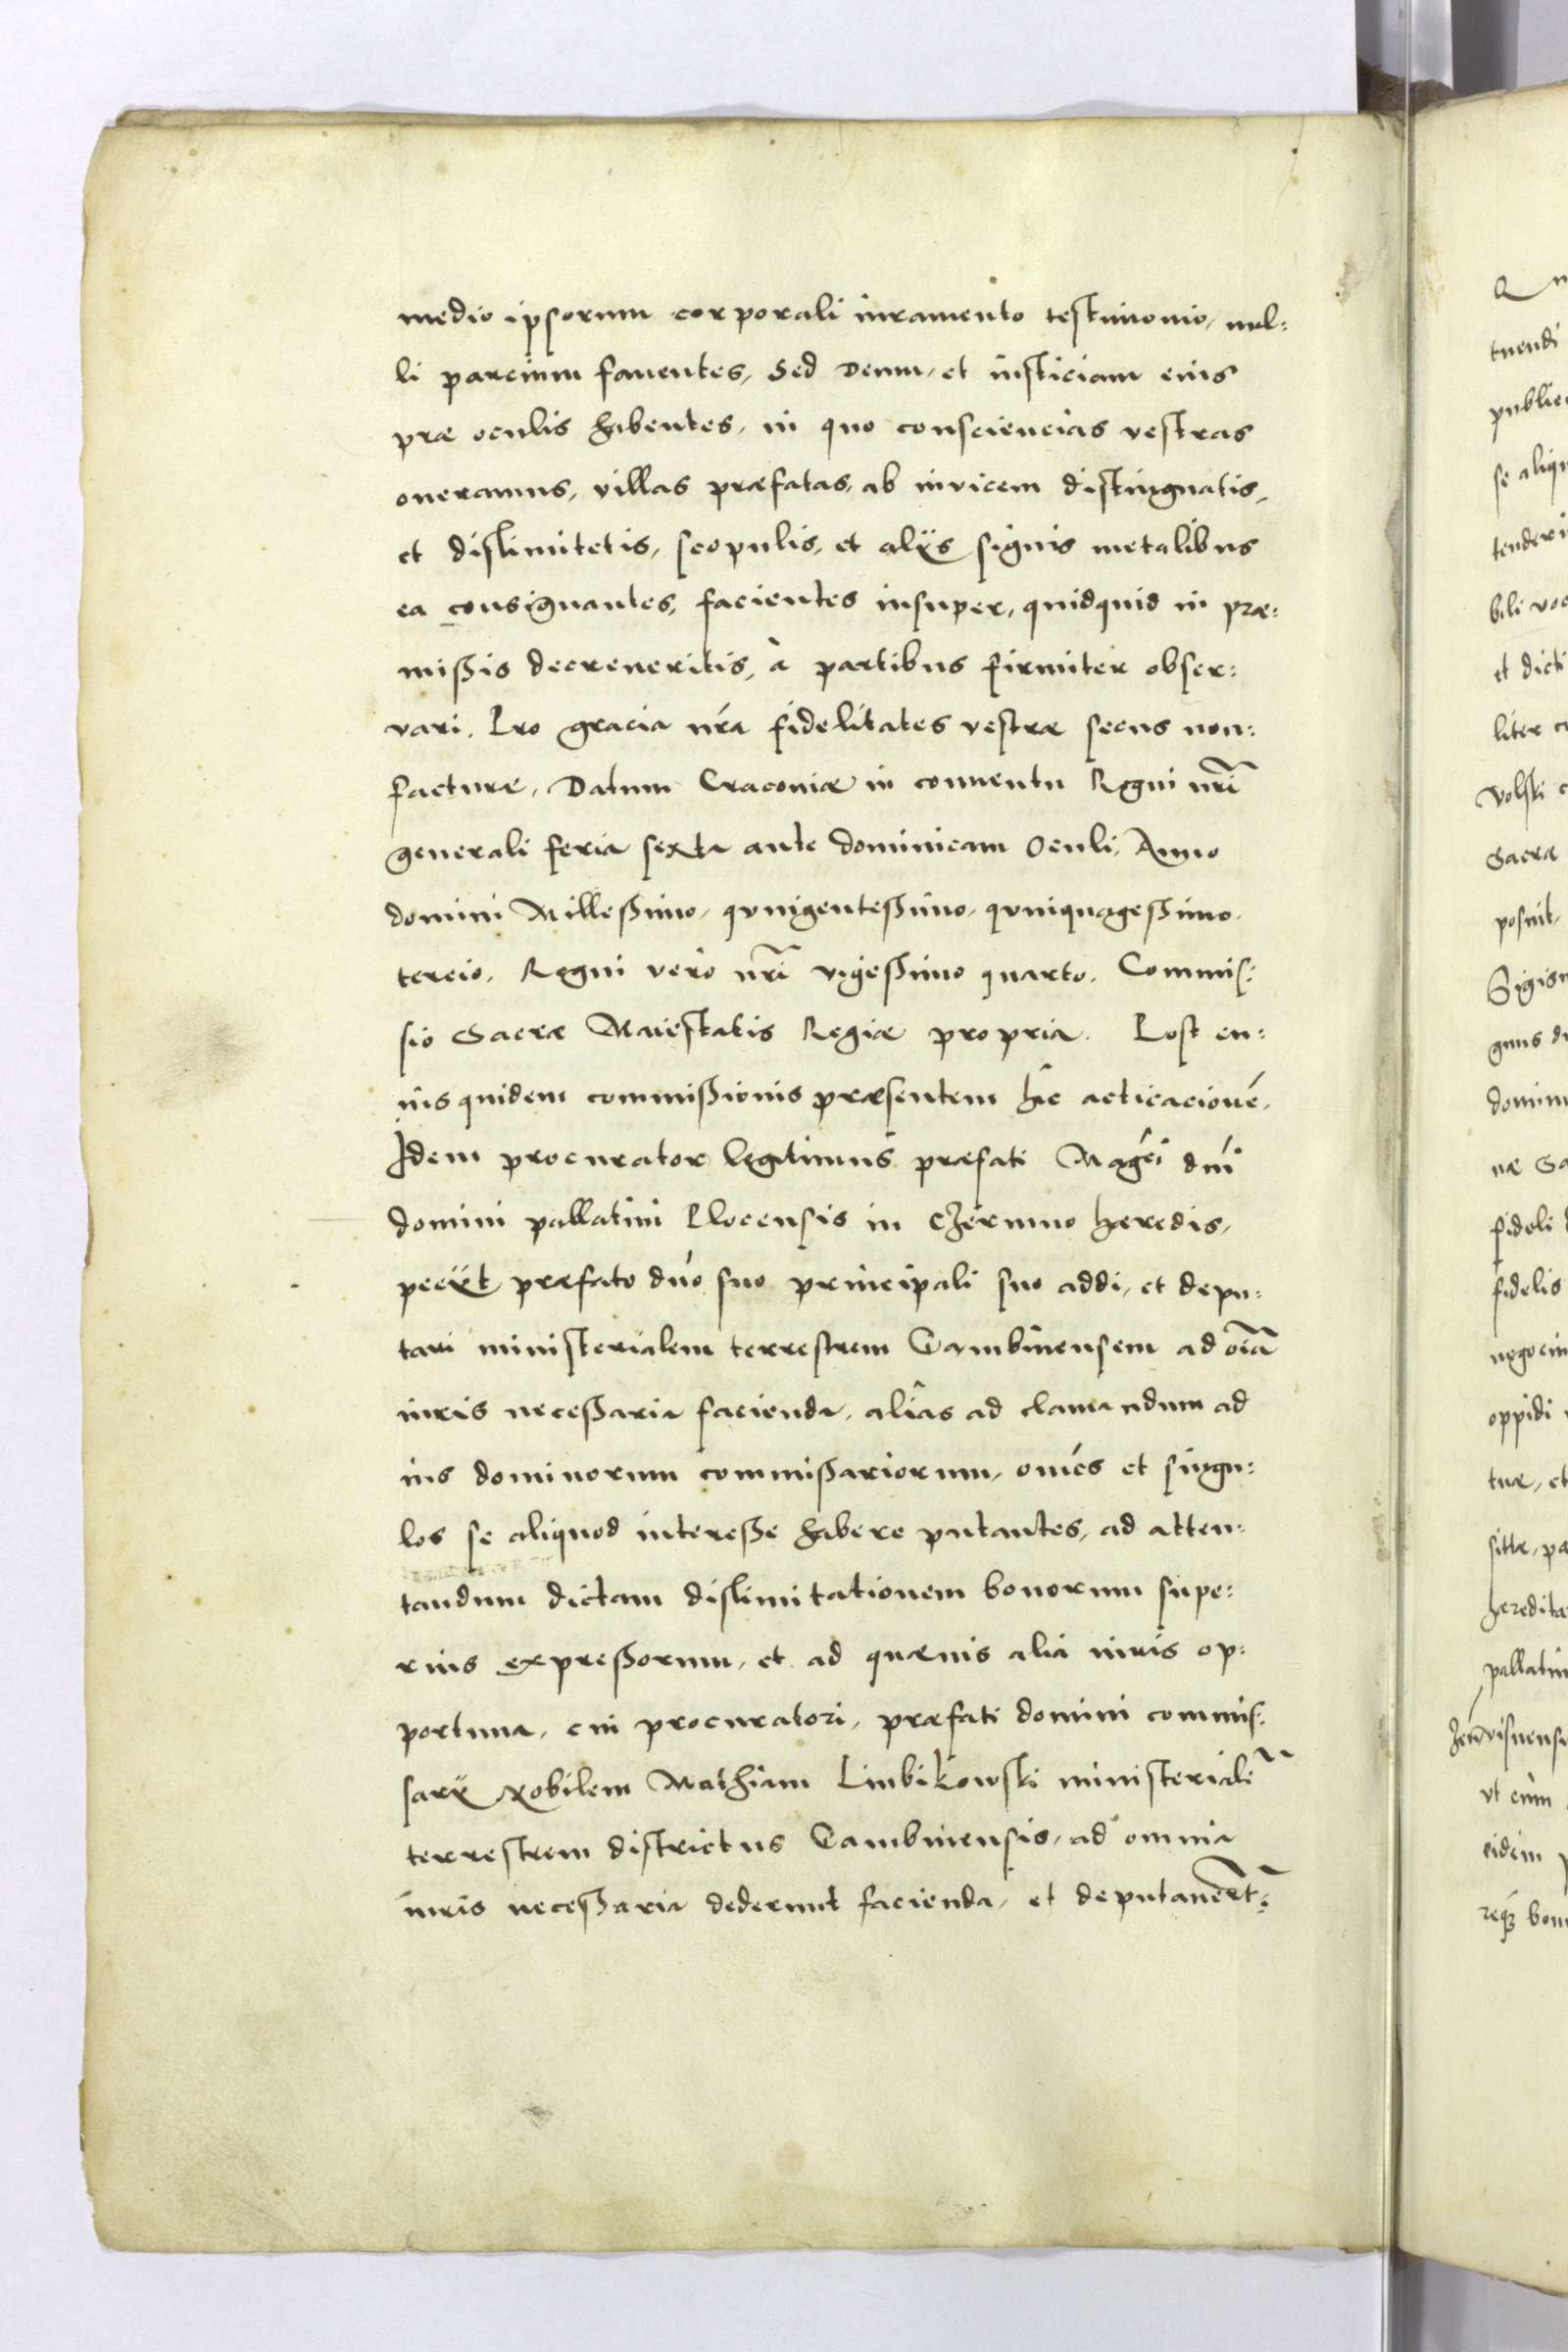 medio ipsorum corporali iuramento testimonio, nul:
li parcium fauentes, Sed Deum, et iusticiam eius
præ oculis habentes, in quo consciencias vestras
oneramus, villas præfatas, ab inuicem distinguatis,
et dislimitetis, scopulis, et alÿs signis metalibus
ea consignantes, facientes insuper, quidquid in præ:
mißis decreueritis, à partibus firmiter obser:
vari. Pro gracia nr̃a fidelitates vestræ secus non:
facturæ. Datum Cracouiæ in conuentu Regni nr̃i
generali feria sexta ante dominicam Oculi, Anno
domini Milleßimo, quingenteßimo, quinquageßimo
tercio. Regni vero nr̃i vigeßimo quarto. Commis:
sio Sacræ Maiestatis Regiæ propria. Post cu:
ius quidem commißionis præsentem hic acticacionẽ,
Idem procurator legitimus præfati Magci dñi
domini pallatini Plocensis in Czermno hæredis,
pecÿt præfato dño suo principali suo addi, et depu:
tari ministerialem terrestrem Gambinensem ad oĩa
iuris neceßaria facienda, alias ad clamandum ad
ius dominorum commißariorum, omẽs et singu:
los se aliquod intereße habere putantes, ad atten:
tandum dictam dislimitationem bonorum supe:
rius expreßorum, et ad quæuis alia iuris op:
portuna, cui procuratori, præfati domini commis:
sarÿ Nobilem Mathiam Linbikowski ministerialẽ
terrestrem districtus Gambinensis, ad omnia
iuris neceßaria dederunt facienda, et deputauẽrt:
tuendi
se aliqu
et dicti
Volski
Sacra
posuit,
Sigism
domini
fideli
fidelis
oppidi
tuæ, et
hæredita
pallatin
eidem